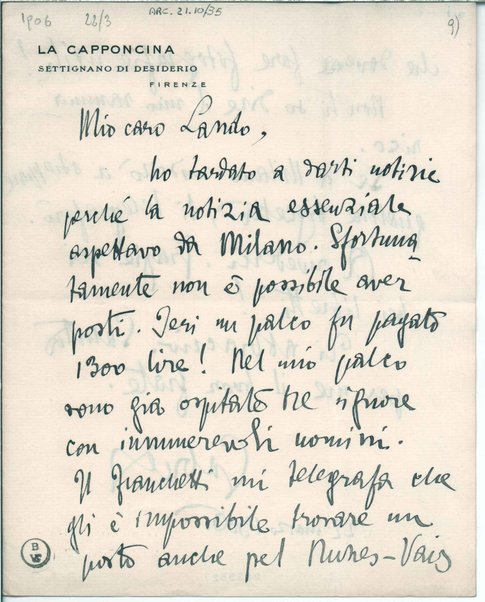 1906 28/3
ARC. 21.10/35
9)
LA CAPPONCINA
SETTIGNANO DI DESIDERIO
FIRENZE
Mio caro Lando,
ho tardato a darti notizie
perché la notizia essenziale
aspettavo da Milano. Sfortuna
tamente non è possibile aver
posti. Ieri un palco fu pagato
1300 lire! Nel mio palco
sono già ospitate tre signore
con innumerevoli uomini.
Il Franchetti mi telegrafa che
gli è impossibile trovare un
posto anche pel Nunes-Vais